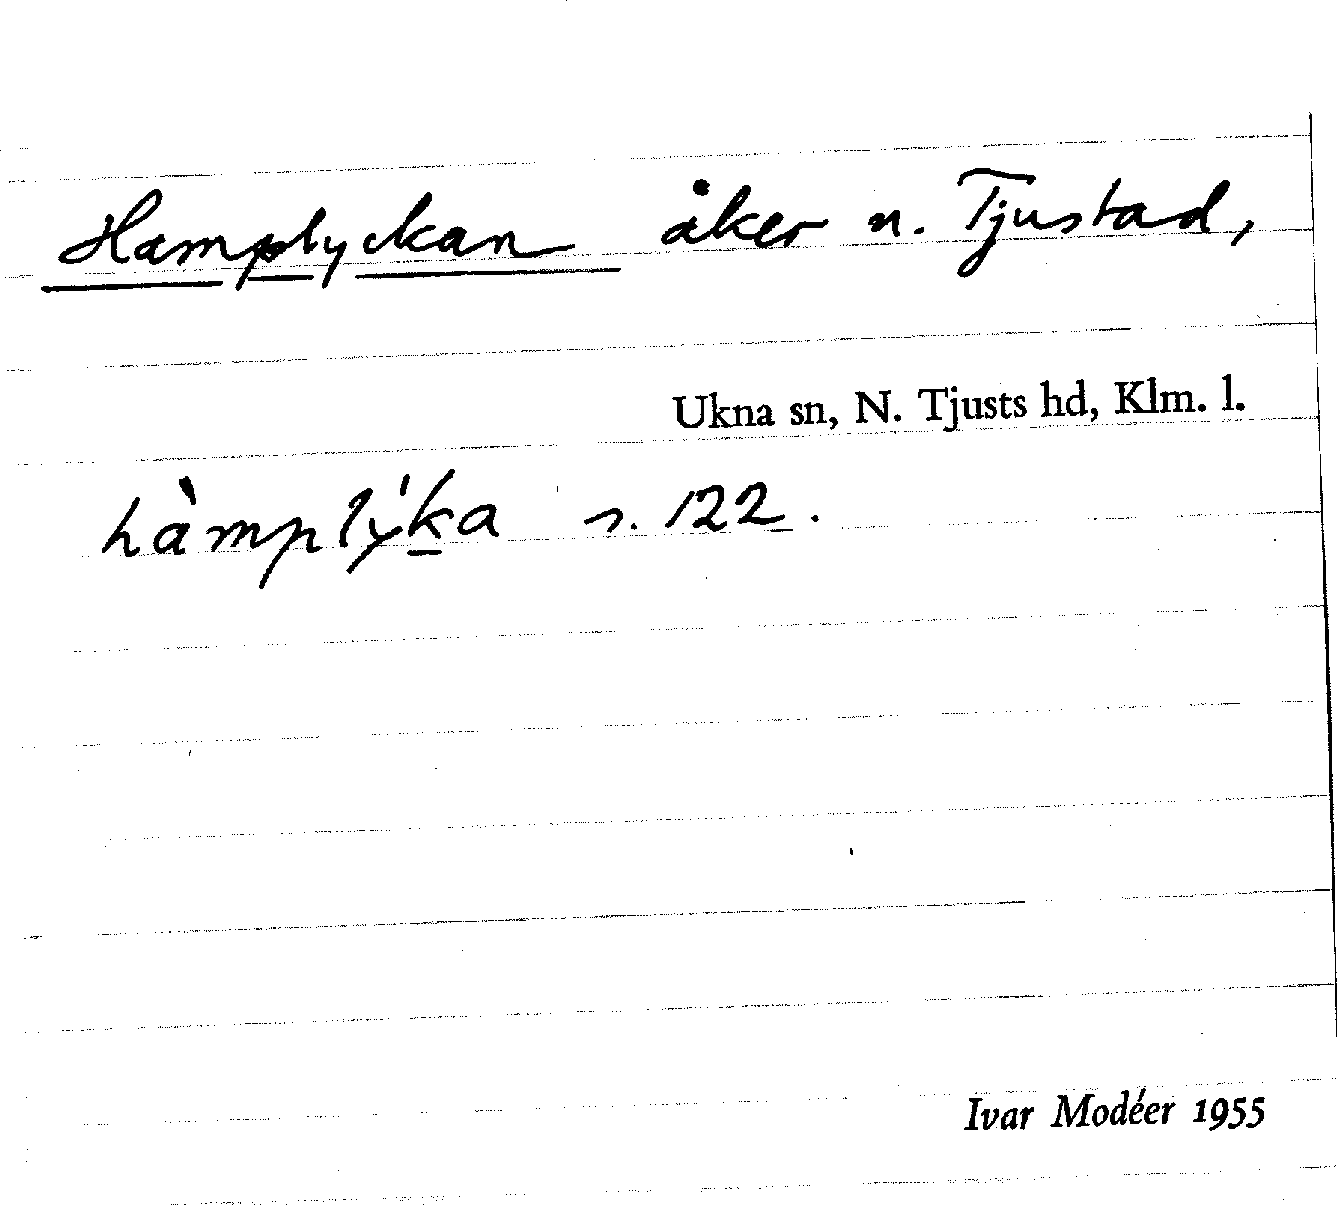 Hamplyckan åker n. Tjustad,
Ukna sn, N. Tjusts hd, Klm. l.
hàmplýka s. 122.
Ivar Modéer 1955